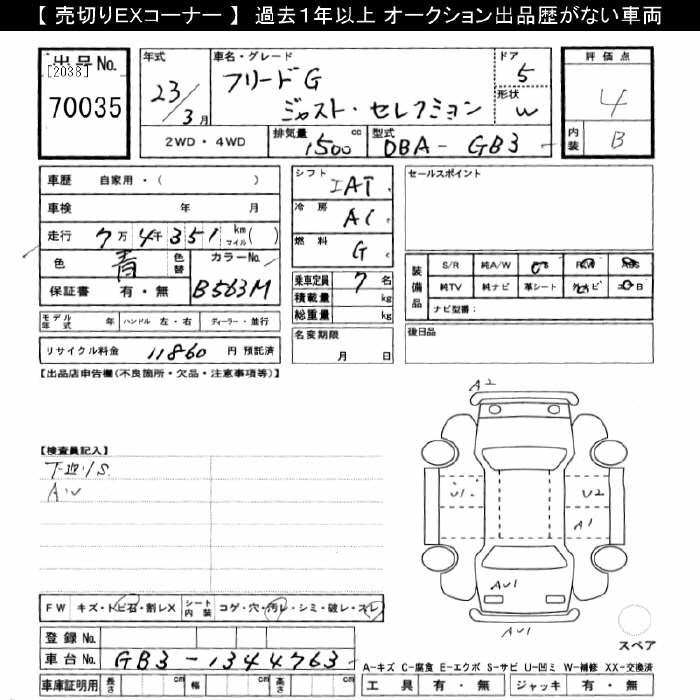 【 売切りEXコーナー 】 過去1年以上 オークション出品歴がない車両
出品No.
[2038]
70035
年式
23/3月
車名・グレード
フリードG
ジャスト・セレクション
ドア
5
形状
W
評価点
4
内装
B
2WD・4WD
排気量
1500 cc
型式
DBA-GB3
車歴 自家用・( )
車検 年 月
走行 7万4千351 km マイル( )
色 青 色替
カラーNo.
B563M
保証書 有・無
シフト
IAT
冷房
AC
燃料
G
乗車定員 7 名
積載量 kg
総重量 kg
名変期限
月 日
セールスポイント
装備品
S/R 純A/W
純TV 純ナビ 革シート
ナビ型番:
後日品
モデル年式 年 ハンドル 左・右 ディーラー・並行
リサイクル料金 11860 円 預託済
【出品店申告欄(不良箇所・欠品・注意事項等)】
【検査員記入】
A・U
A2
U1
U2
A1
AU1
AU1
スペア
FW キズ・トビ石・割レX シート内装 コゲ・穴・汚レ・シミ・破レ・スレ
登録No.
車台No. GB3-1344763
車庫証明用 長さ cm 幅 cm 高さ cm
A-キズ C-腐食 E-エクボ S-サビ U-凹ミ W-補修 XX-交換済
工具 有・無 ジャッキ 有・無